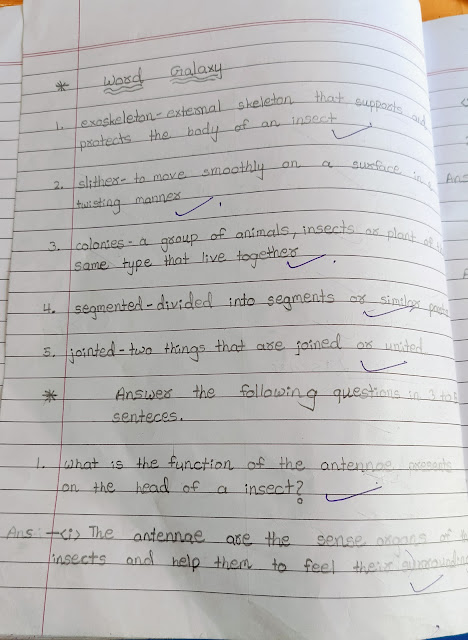 * Word Galaxy
1. exoskeleton - external skeleton that supports and
protects the body of an insect
2. slither - to move smoothly on a surface in a
twisting manner
3. colonies - a group of animals, insects or plant of
same type that live together
4. segmented - divided into segments or similar parts
5. jointed - two things that are joined or united
* Answer the following questions in 3 to
senteces.
1. What is the function of the antennae presents
on the head of a insect?
Ans :- (i) The antennae are the sense organs of
insects and help them to feel their surrounding
Ans